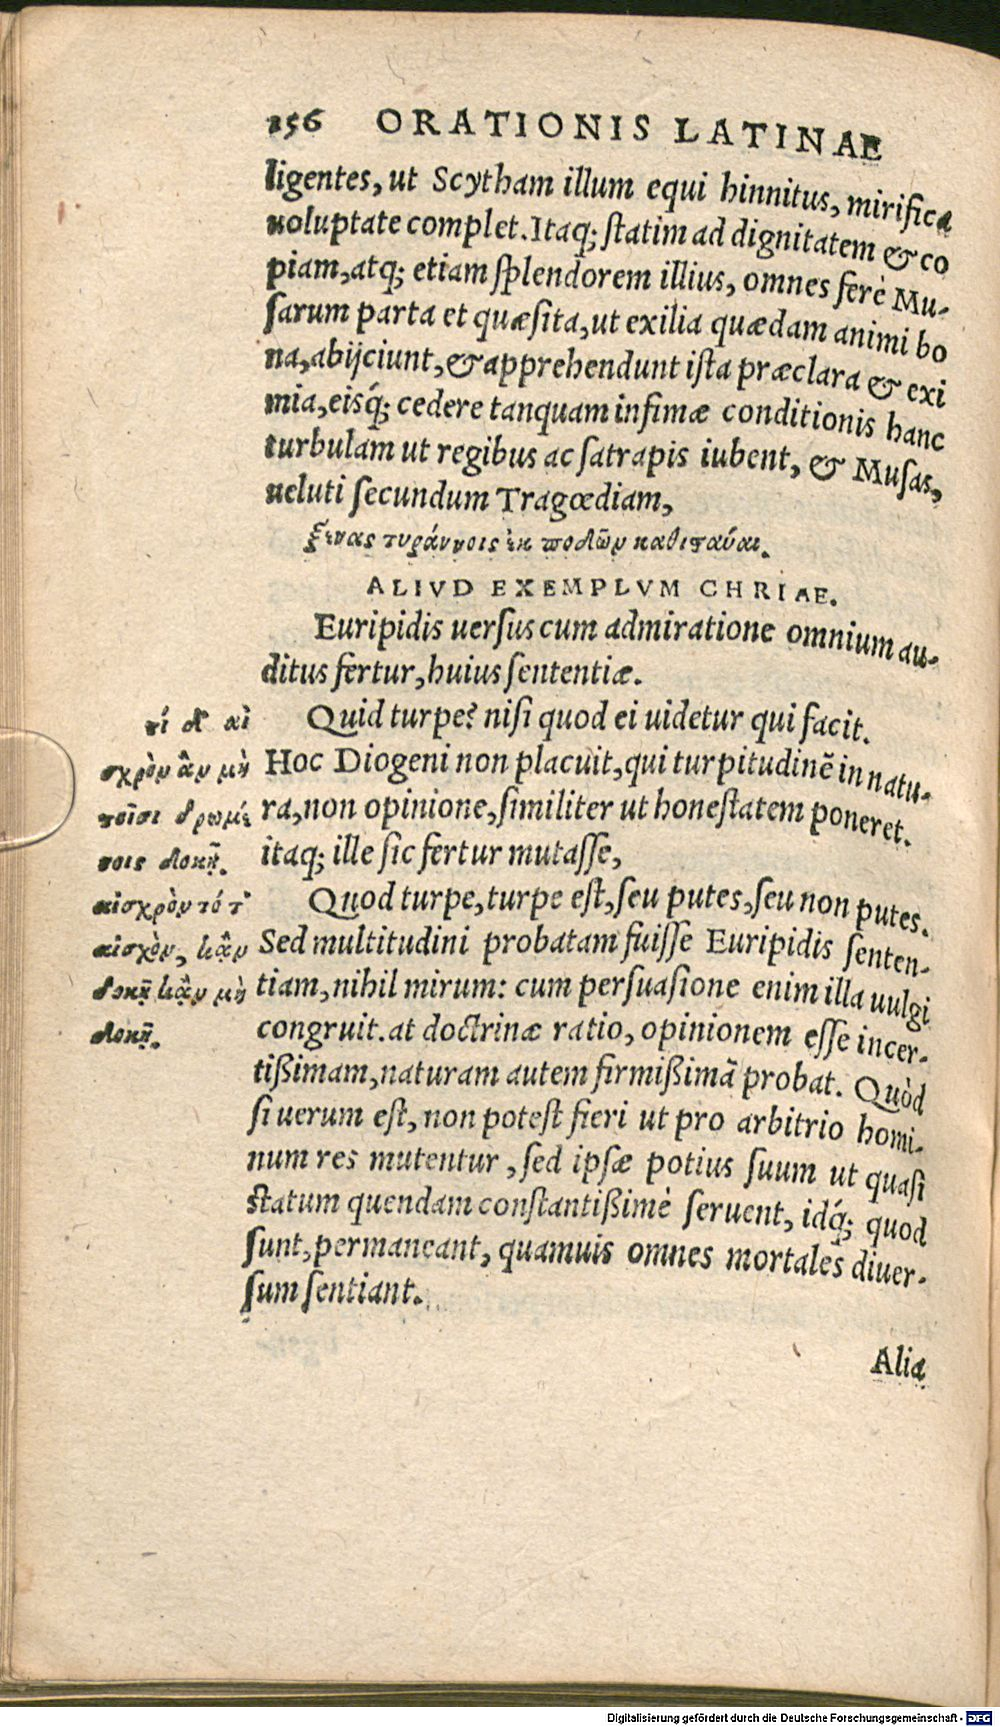 156 ORATIONIS LATINAE
ligentes, ut Scytham illum equi hinnitus, mirifica
uoluptate complet. Itaq; ſtatim ad dignitatem & co
piam, atq; etiam ſplendorem illius, omnes ferè Mu-
ſarum parta et quæſita, ut exilia quædam animi bo
na, abijciunt, & apprehendunt iſta præclara & exi
mia, eisq́; cedere tanquam infimæ conditionis hanc
turbulam ut regibus ac ſatrapis iubent, & Muſas,
ueluti ſecundum Tragœdiam,
τυράννοις
ALIVD EXEMPLVM CHRIAE.
Euripidis uerſus cum admiratione omnium au-
ditus fertur, huius ſententiæ.
Quid turpe? niſi quod ei uidetur qui facit.
Hoc Diogeni non placuit, qui turpitudinẽ in natu-
ra, non opinione, ſimiliter ut honeſtatem poneret.
itaq; ille ſic fertur mutaſſe,
Quod turpe, turpe eſt, ſeu putes, ſeu non putes.
Sed multitudini probatam fuiſſe Euripidis ſenten-
tiam, nihil mirum: cum perſuaſione enim illa uulgi
congruit. at doctrinæ ratio, opinionem eſſe incer-
tißimam, naturam autem firmißimã probat. Quòd
ſi uerum eſt, non poteſt fieri ut pro arbitrio homi-
num res mutentur, ſed ipſæ potius ſuum ut quaſi
ſtatum quendam conſtantißimè ſeruent, idq́; quod
ſunt, permaneant, quamuis omnes mortales diuer-
ſum ſentiant.
Aliæ
τί δ' αἰ
σχρὸν ἂν μὴ
τοῖσι δρωμέ
νοις δοκῇ.
αἰσχρὸν τό τ'
αἰσχρὸν, κἂν
δοκῇ κἂν μὴ
δοκῇ.
Digitalisierung gefördert durch die Deutsche Forschungsgemeinschaft - DFG